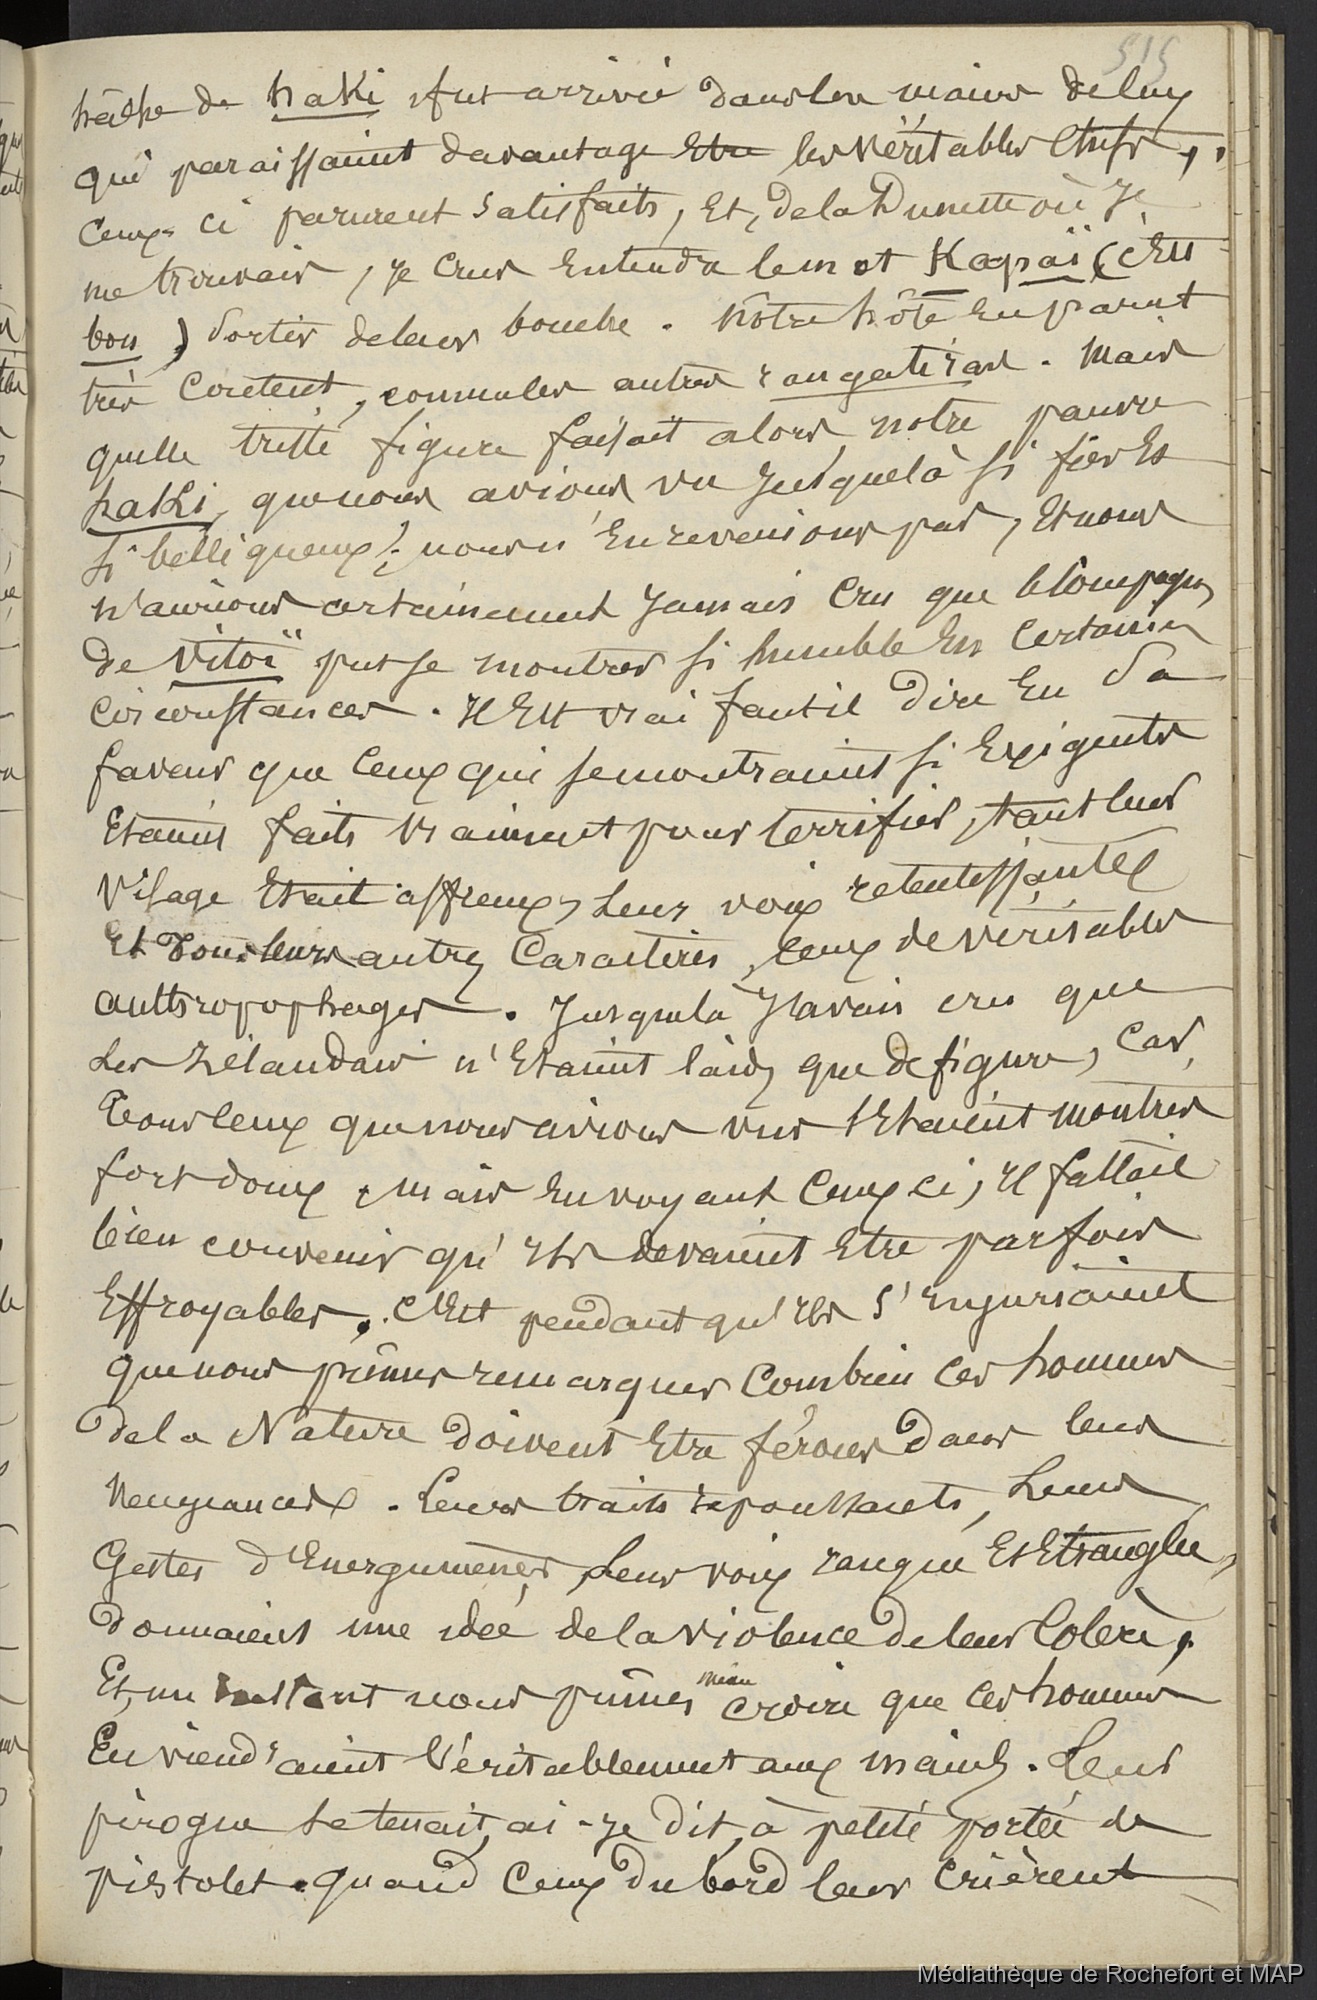 515
hache de haki fut arrivée dans les mains de ceux
qui paraissaient davantage Etre les véritables Chefs,
Ceux-ci parurent Satisfaits, Et, de la Dunette où Je
me trouvais, je Crus Entendre le mot Kapaï (c'Est
bon) Sortir de leur bouche. Nôtre hôte En parut
très Content, comme les autres rangatiras. Mais
quelle triste figure faisait alors notre pauvre
haki, que nous avions vu Jusque là si fier Et
si belliqueux! nous n'En revenions pas, Et nous
n'aurions certainement Jamais Cru que le Compagnon
de Vitoï put se montrer si humble En Certaines
Circonstances. Il Est vrai faut il Dire En Sa
faveur que Ceux qui se montraient si Exigents
Etaient faits vraiment pour terrifier, tant leur
Visage Etait affreux, Leur voix retentissantes
Et Tous leurs autres Caractères, Ceux de véritables
anthropophages. Jusque là J'avais cru que
Les Zélandais n'Etaient laids que de figure, Car,
Tous Ceux que nous avions vus s'Etaient montrés
fort doux, mais En voyant Ceux ci, Il fallait
bien convenir qu'Ils devaient Etre parfois
Effroyables. C'Est pendant qu'Ils S'injuriaient
que nous pûmes remarquer Combien Ces hommes
de la Nature doivent Etre féroces Dans leur
Vengeances. Leurs traits repoussants, Leurs
Gestes d'Energumenes, Leur voix rauque Et Etranglée,
Donnaient une idée de la violence de leur Colère,
Et, un instant nous pûmes même croire que Ces hommes
En viendraient Véritablement aux mains. Leur
pirogue se tenait, ai-Je Dit, à petite portée de
pistolet. quand Ceux Du bord leur Crièrent
Médiathèque de Rochefort et MAP